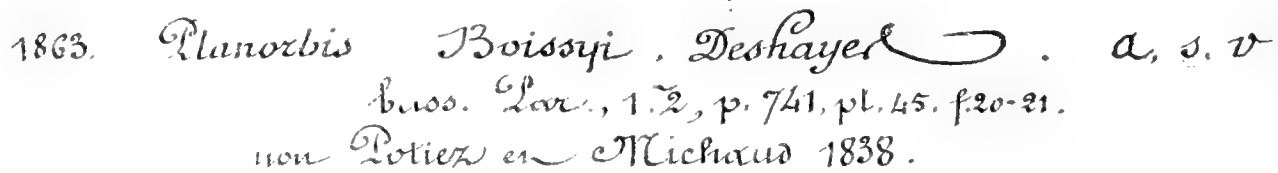 1863. Planorbis Boissyi. Deshayes. a, s. v
bass. Par., t. 2, p. 741, pl. 45. f. 20-21.
non Potiez et Michaud 1838.